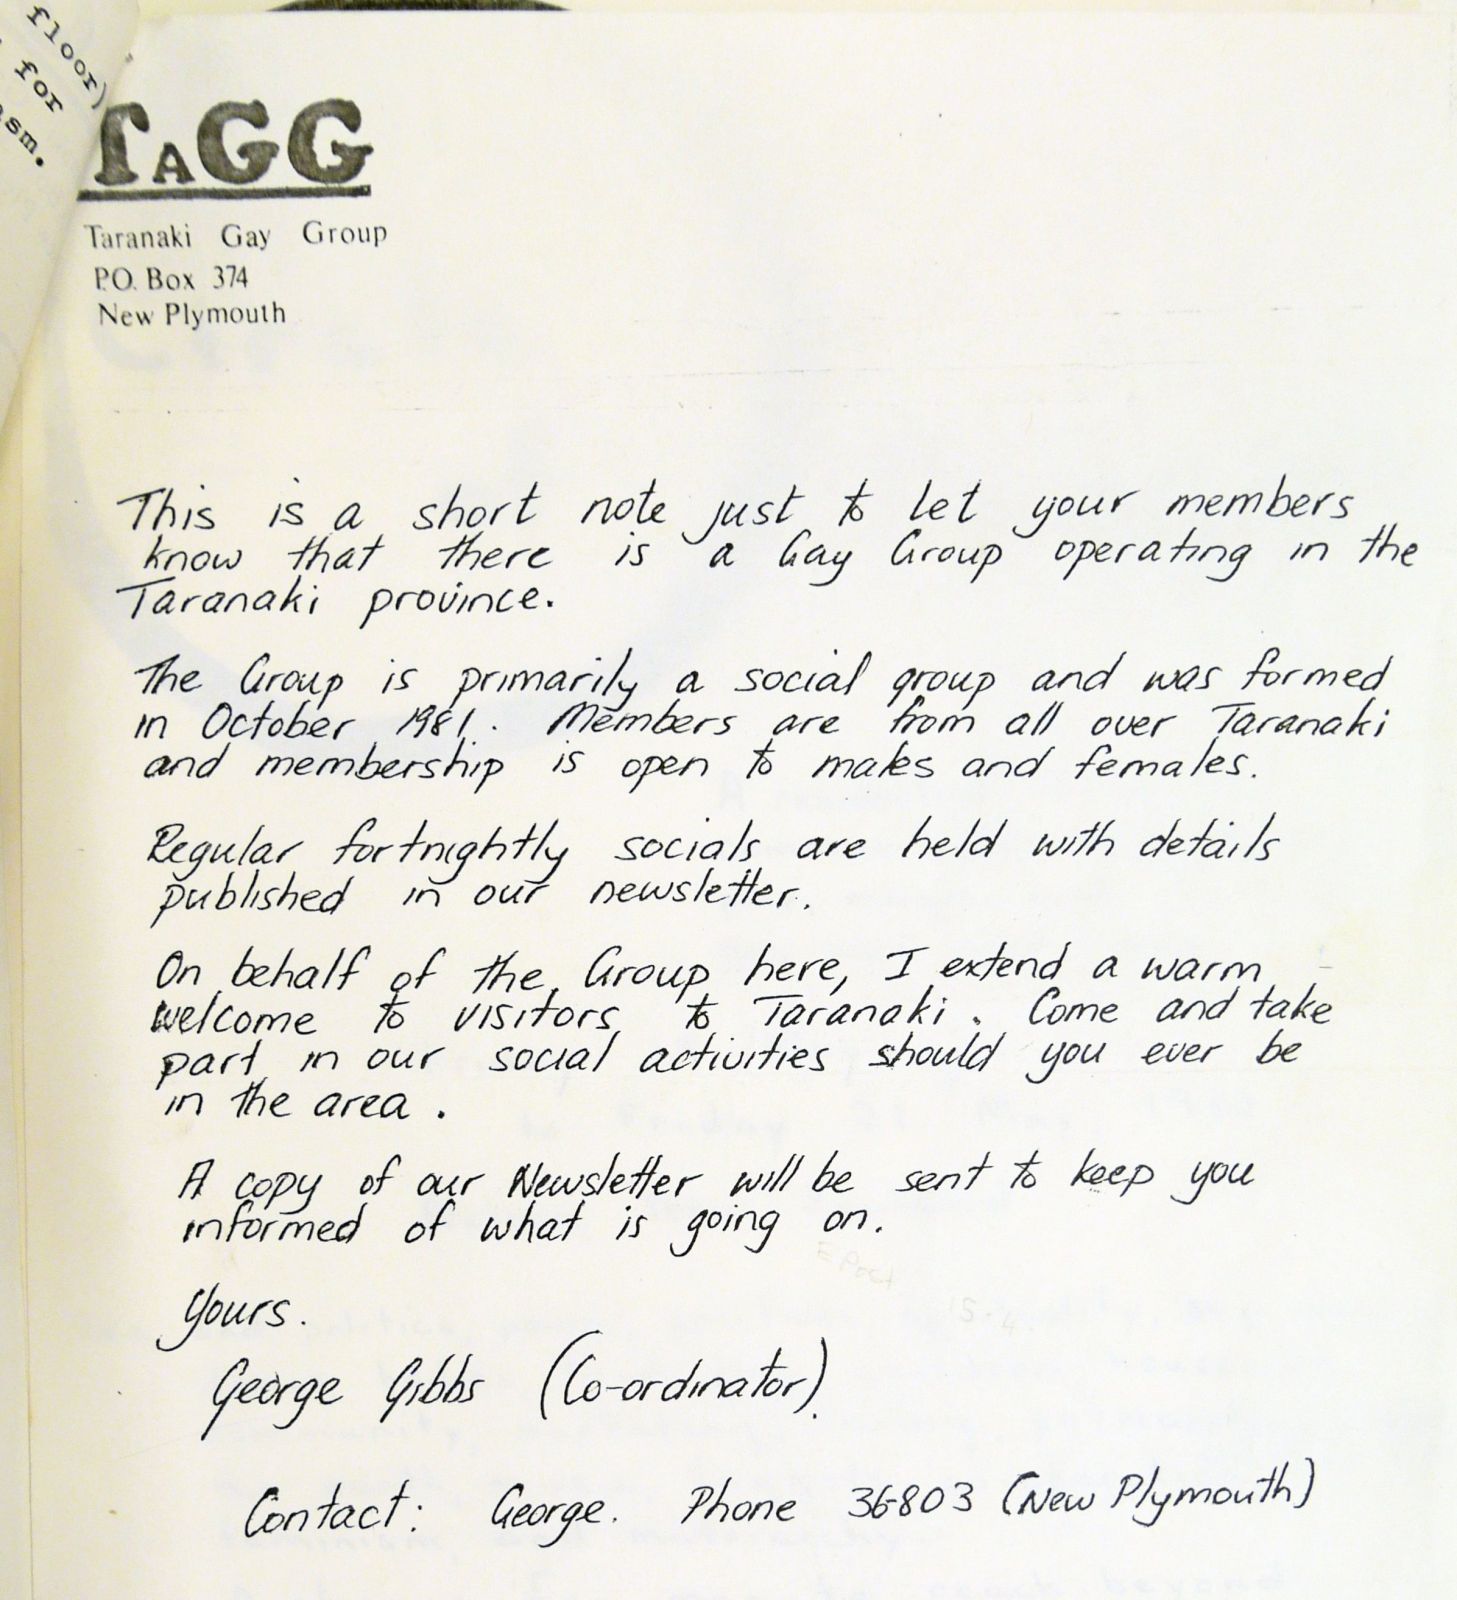 floor)
for
asm.
TAGG
Taranaki Gay Group
P.O. Box 374
New Plymouth
This is a short note just to let your members
know that there is a Gay Group operating in the
Taranaki province.
The Group is primarily a social group and was formed
in October 1981. Members are from all over Taranaki
and membership is open to males and females.
Regular fortnightly socials are held with details
published in our newsletter.
On behalf of the Group here, I extend a warm
welcome to visitors to Taranaki. Come and take
part in our social activities should you ever be
in the area.
A copy of our Newsletter will be sent to keep you
informed of what is going on.
Yours.
George Gibbs (Co-ordinator).
Contact: George. Phone 36-803 (New Plymouth)